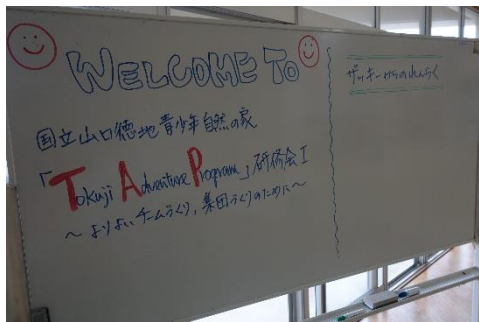 WELCOME TO
国立山口徳地青少年自然の家
「Tokuji Adventure Program」研修会Ⅰ
～よりよいチームづくり,集団づくりのために～
ザッキーからのれんらく